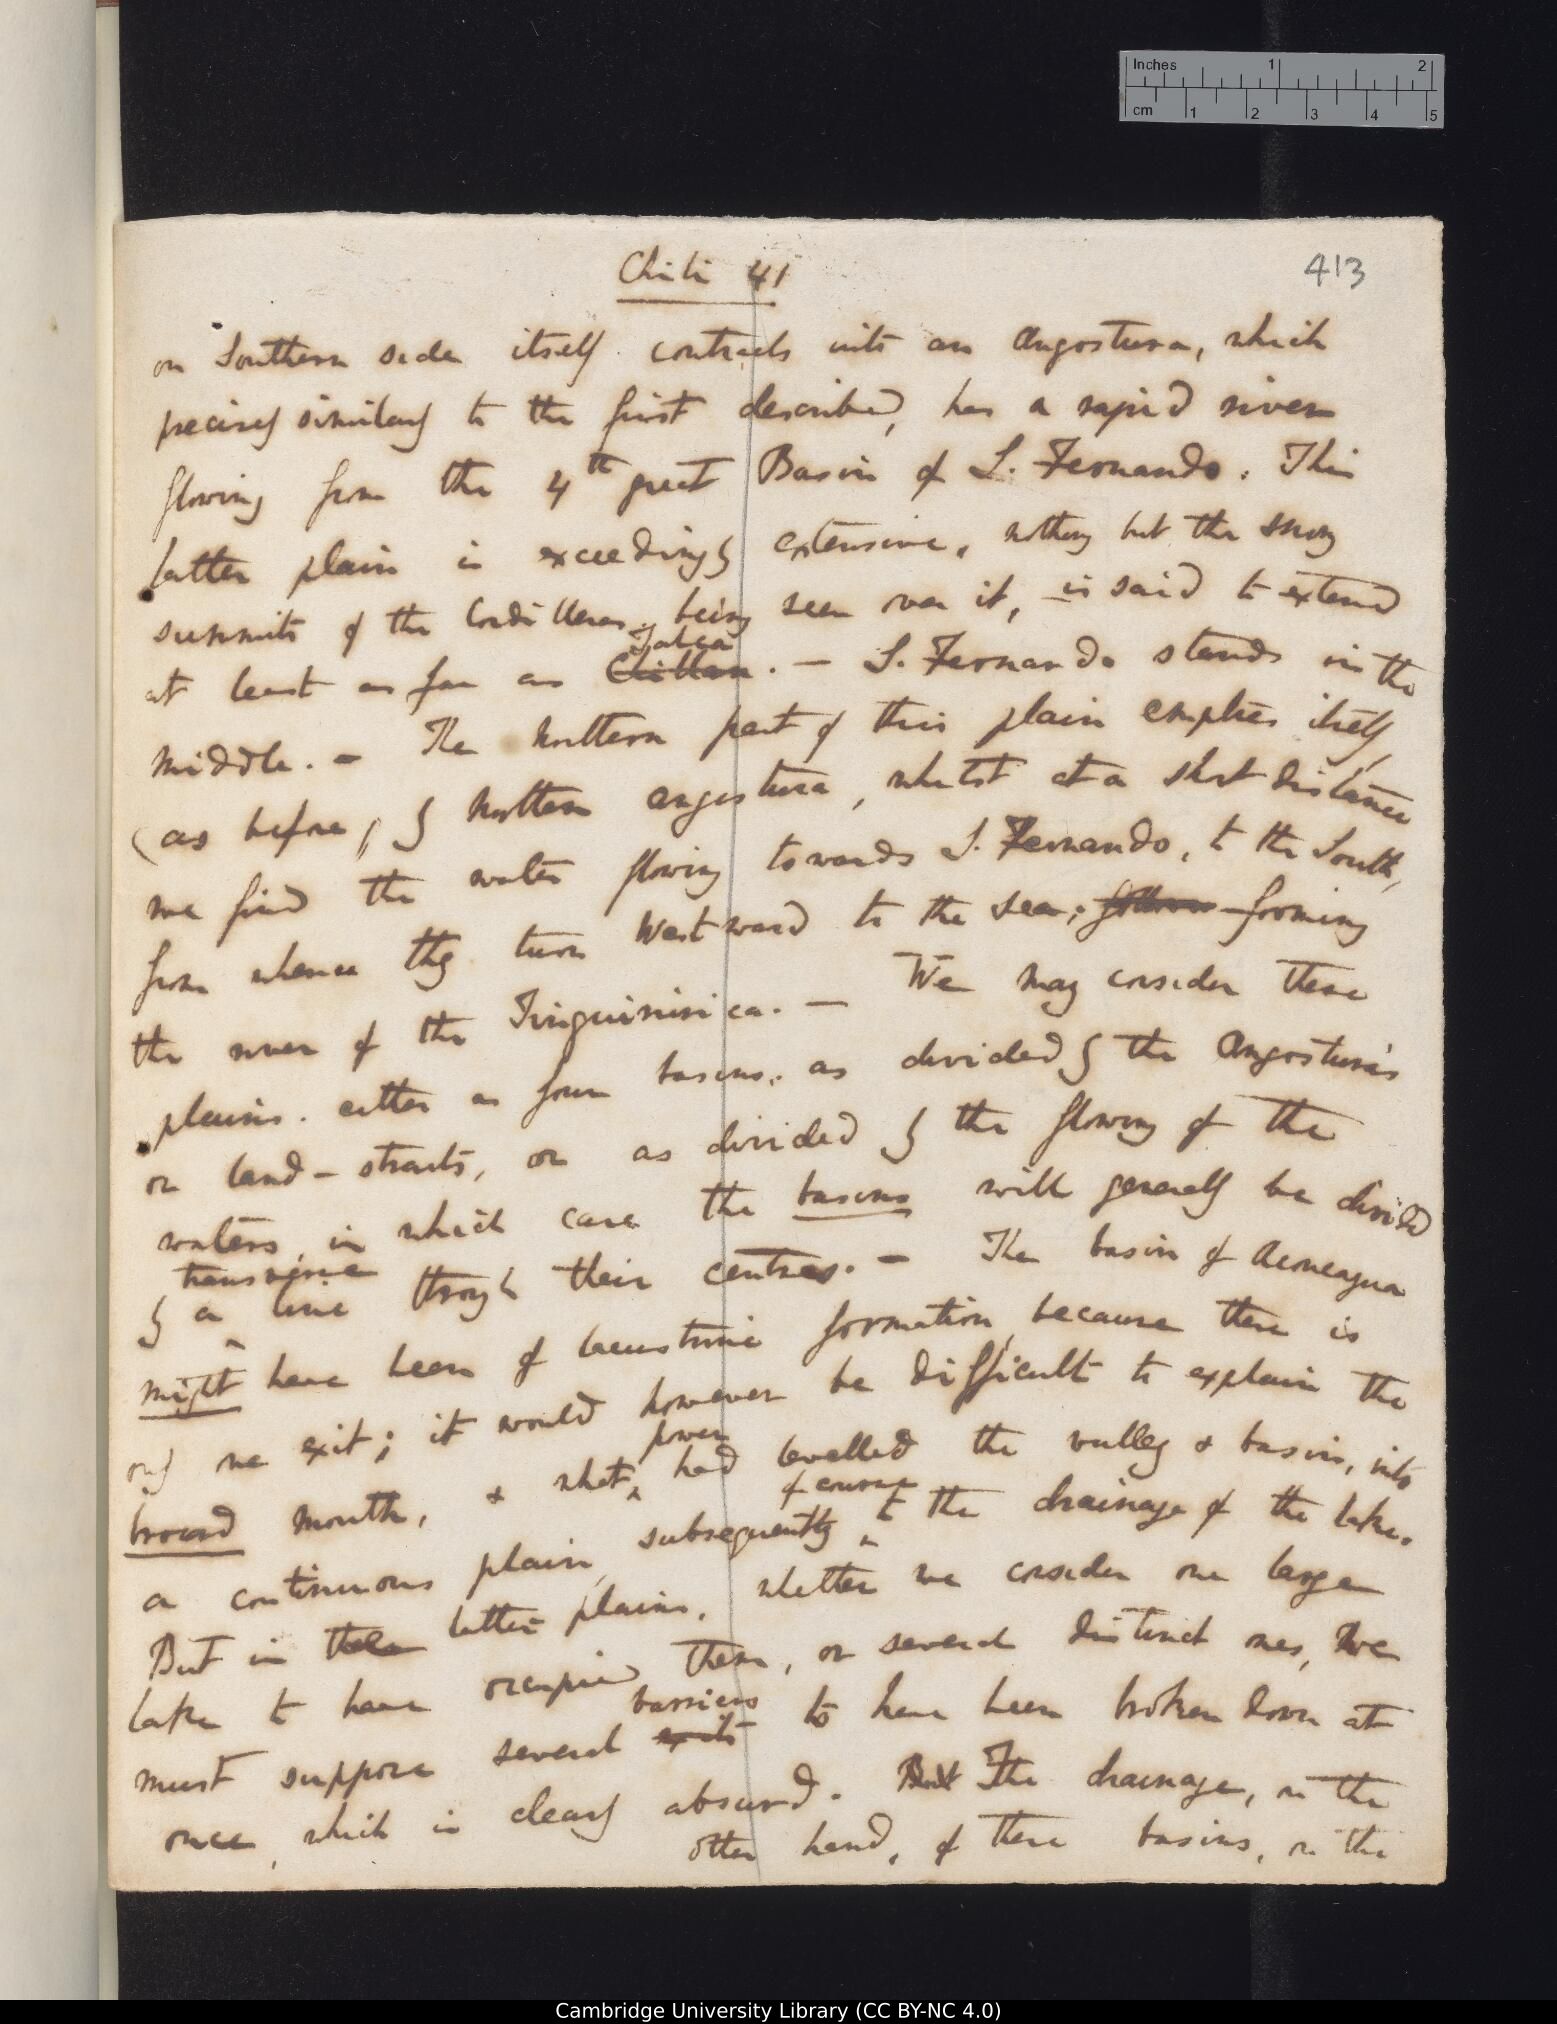 Inches 1 2
cm 1 2 3 4 5
Chili 41
413
on Southern side itself contracts into an Angostura, which
precisely similarly to the first described, has a rapid river
flowing from the 4th great Basin of S. Fernando. This
latter plain is exceedingly extensive, nothing but the snowy
summits of the Cordilleras being seen over it, is said to extend
Talca
at least as far as Chillan. — S. Fernando stands in the
middle. — The Northern part of this plain empties itself,
(as before,) by Northern angostura, whilst at a short distance
we find the water flowing towards S. Fernando, to the South,
from whence they turn Westward to the sea; follows forming
the river of the Tinguiririca. — We may consider these
plains. either as four basins, as divided by the Angostura's
or land-straits, or as divided by the flowing of the
waters, in which case the basins will generally be divided
transverse
by a line through their centres. — The basin of Aconcagua
might have been of lacustrine formation, because there is
only one exit; it would however be difficult to explain the
power
broad mouth, & what had levelled the valley & basin, into
of course
a continuous plain, subsequently to the drainage of the lake.
But in these latter plains, whether we consider one large
lake to have occupied them, or several distinct ones, we
barriers
must suppose several exits to have been broken down at
once, which is clearly absurd. But The drainage, on the
other hand, of these basins, on the
Cambridge University Library (CC BY-NC 4.0)